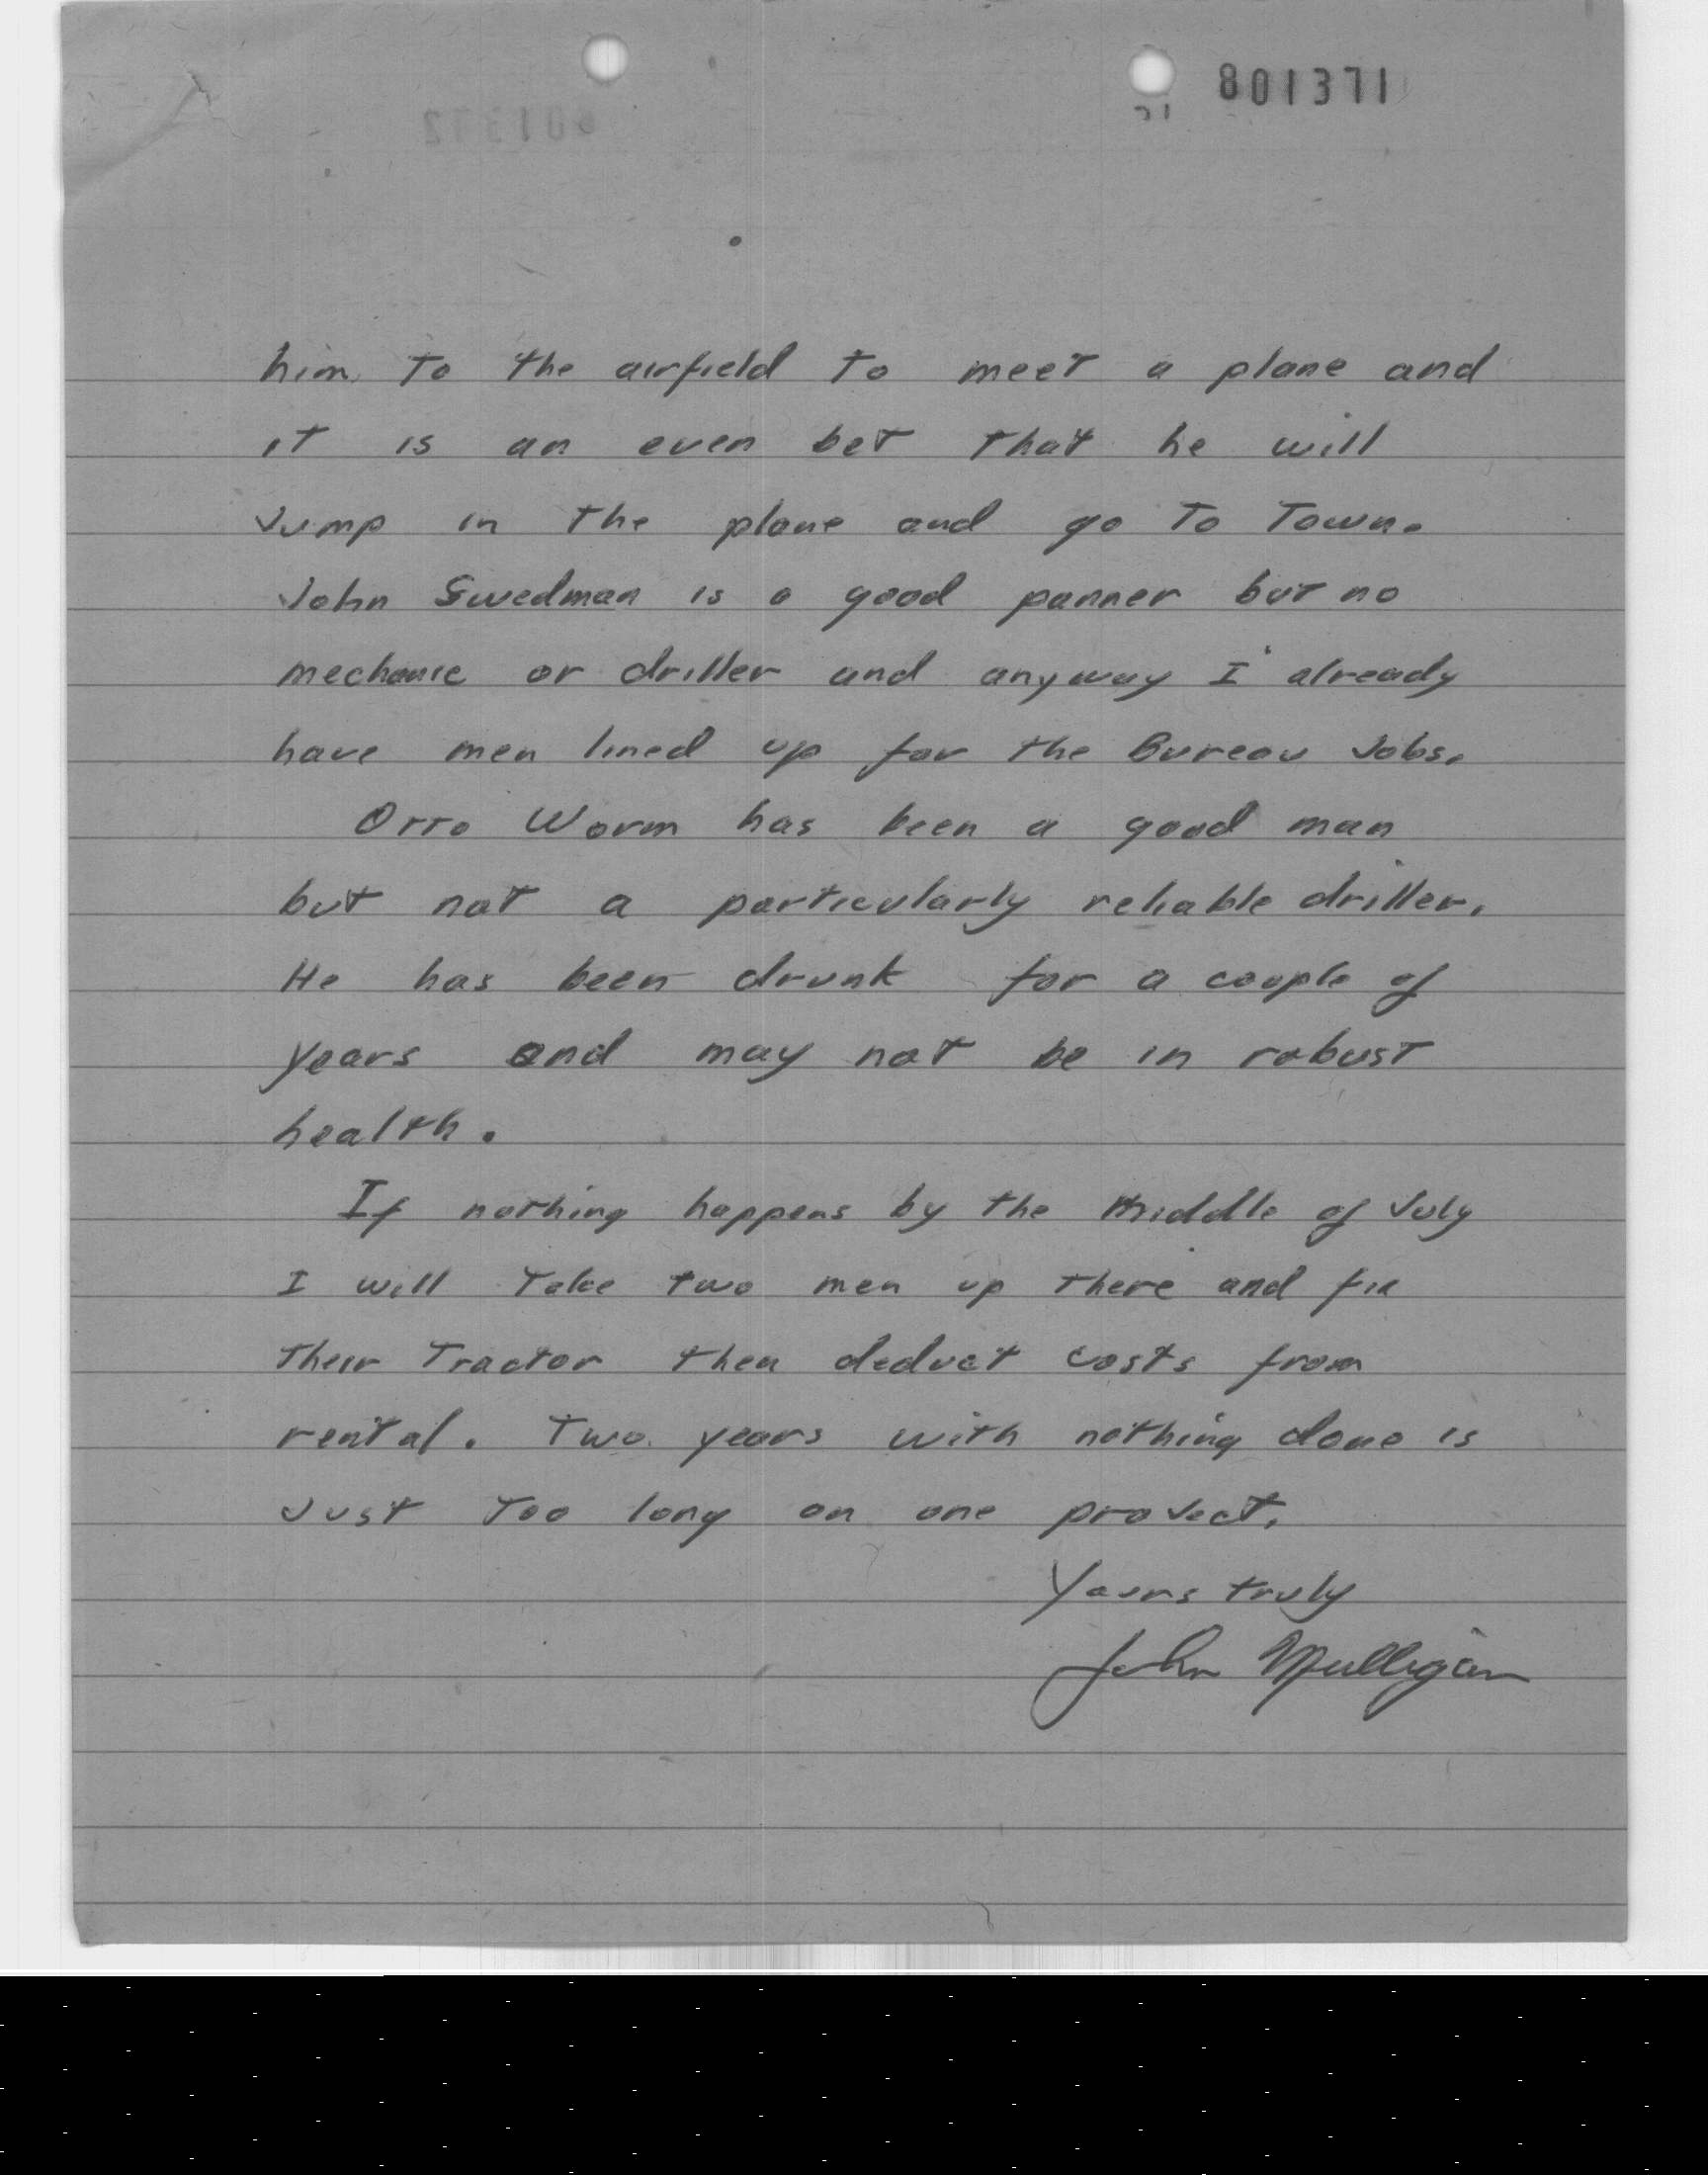 801371
him to the airfield to meet a plane and
it is an even bet that he will
Jump in the plane and go to Town.
John Swedman is a good panner but no
mechanic or driller and anyway I already
have men lined up for the Bureau Jobs.
Otto Worm has been a good man
but not a particularly reliable driller.
He has been drunk for a couple of
years and may not be in robust
health.
If nothing happens by the middle of July
I will take two men up there and fix
their Tractor then deduct costs from
rental. Two years with nothing done is
Just too long on one project.
Yours truly
John Mulligan